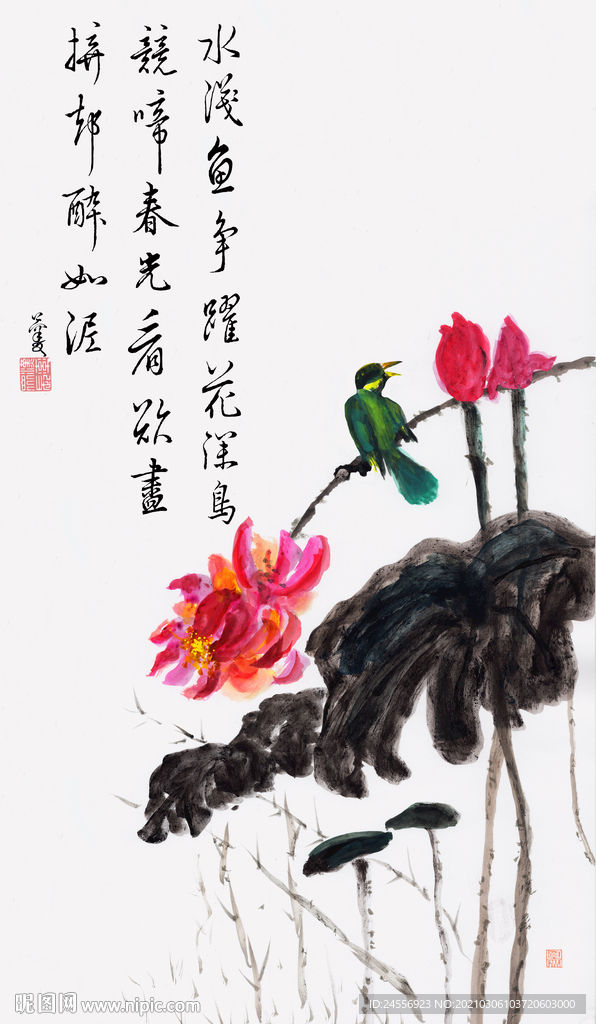 水浅鱼争跃花深鸟
競啼春光看欲盡
拚却醉如泥
昵图网 www.nipic.com
ID:24556923 NO:20210306103720603000